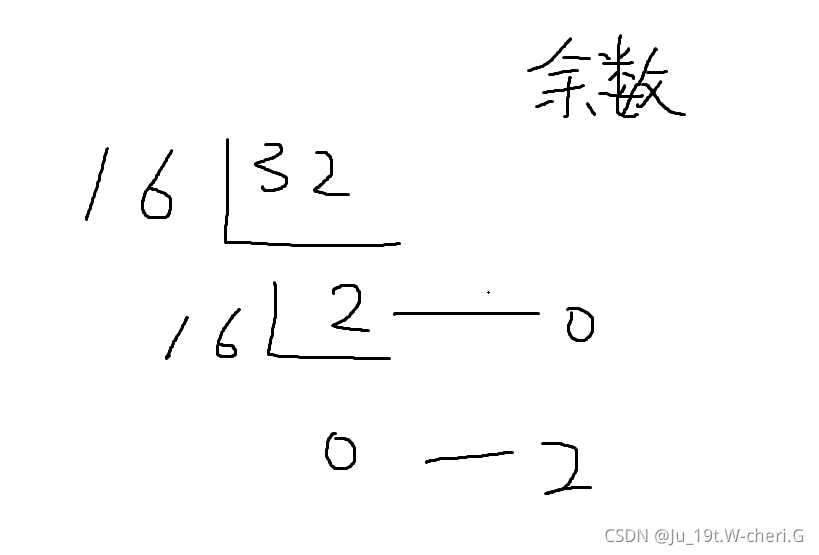 余数
16 32
16 2 — 0
0 — 2
CSDN @Ju_19t.W-cheri.G